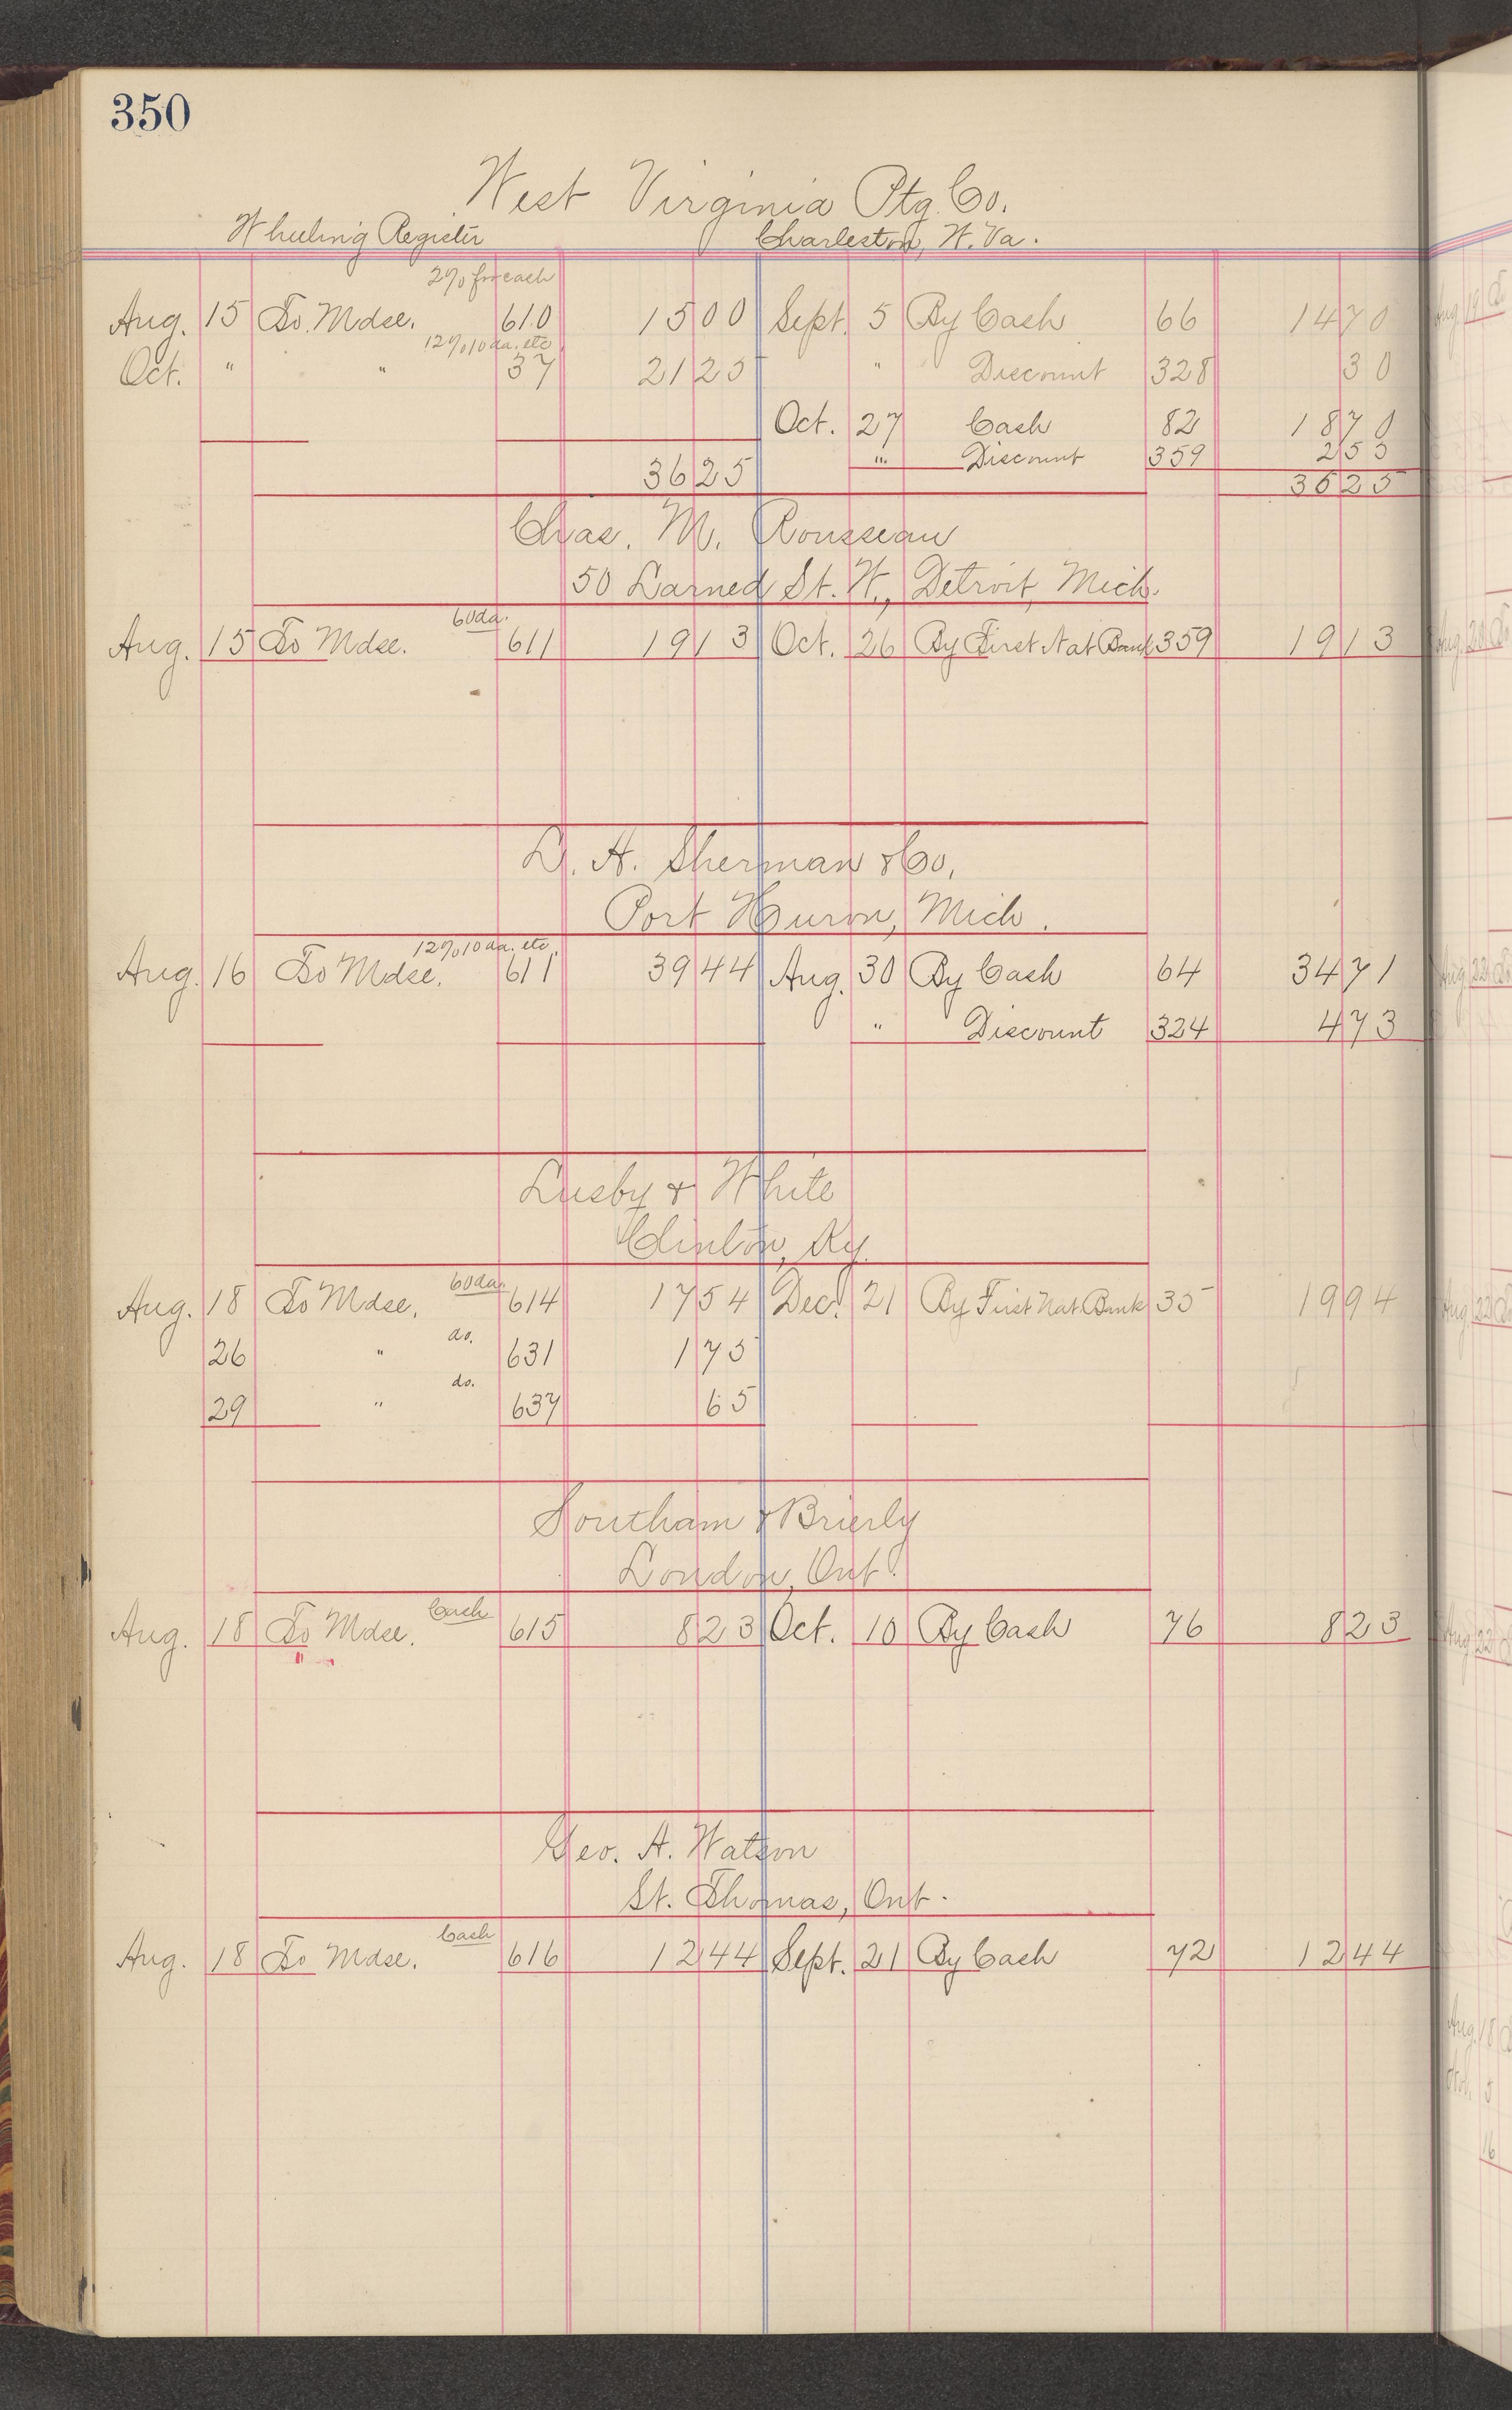 350
West Virginia Ptg. Co.
Wheeling Register Charleston, W. Va.
2% for cash
Aug. 15 To Mdse. 610 15 00 Sept. 5 By Cash 66 14 70
12% 10 da. etc
Oct. " " 37 21 25 " Discount 328 30
Oct. 27 Cash 82 18 70
" Discount 359 2 55
36 25 36 25
Chas. M. Rousseau
50 Larned St. W., Detroit, Mich.
60 da.
Aug. 15 To Mdse. 611 19 13 Oct. 26 By First Nat Bank 359 19 13
D. H. Sherman & Co.,
Port Huron, Mich.
12% 10 da. etc.
Aug. 16 To Mdse. 611 39 44 Aug. 30 By Cash 64 34 71
" Discount 324 4 73
Lusby & White
Clinton, Ky.
60 da.
Aug. 18 To Mdse. 614 17 54 Dec. 21 By First Nat. Bank 35 19 94
do.
26 " 631 1 75
do.
29 " 637 65
Southam & Brierly
London, Ont.
Cash
Aug. 18 To Mdse. 615 8 23 Oct. 10 By Cash 76 8 23
Geo. A. Watson
St. Thomas, Ont.
Cash
Aug. 18 To Mdse. 616 12 44 Sept. 21 By Cash 72 12 44